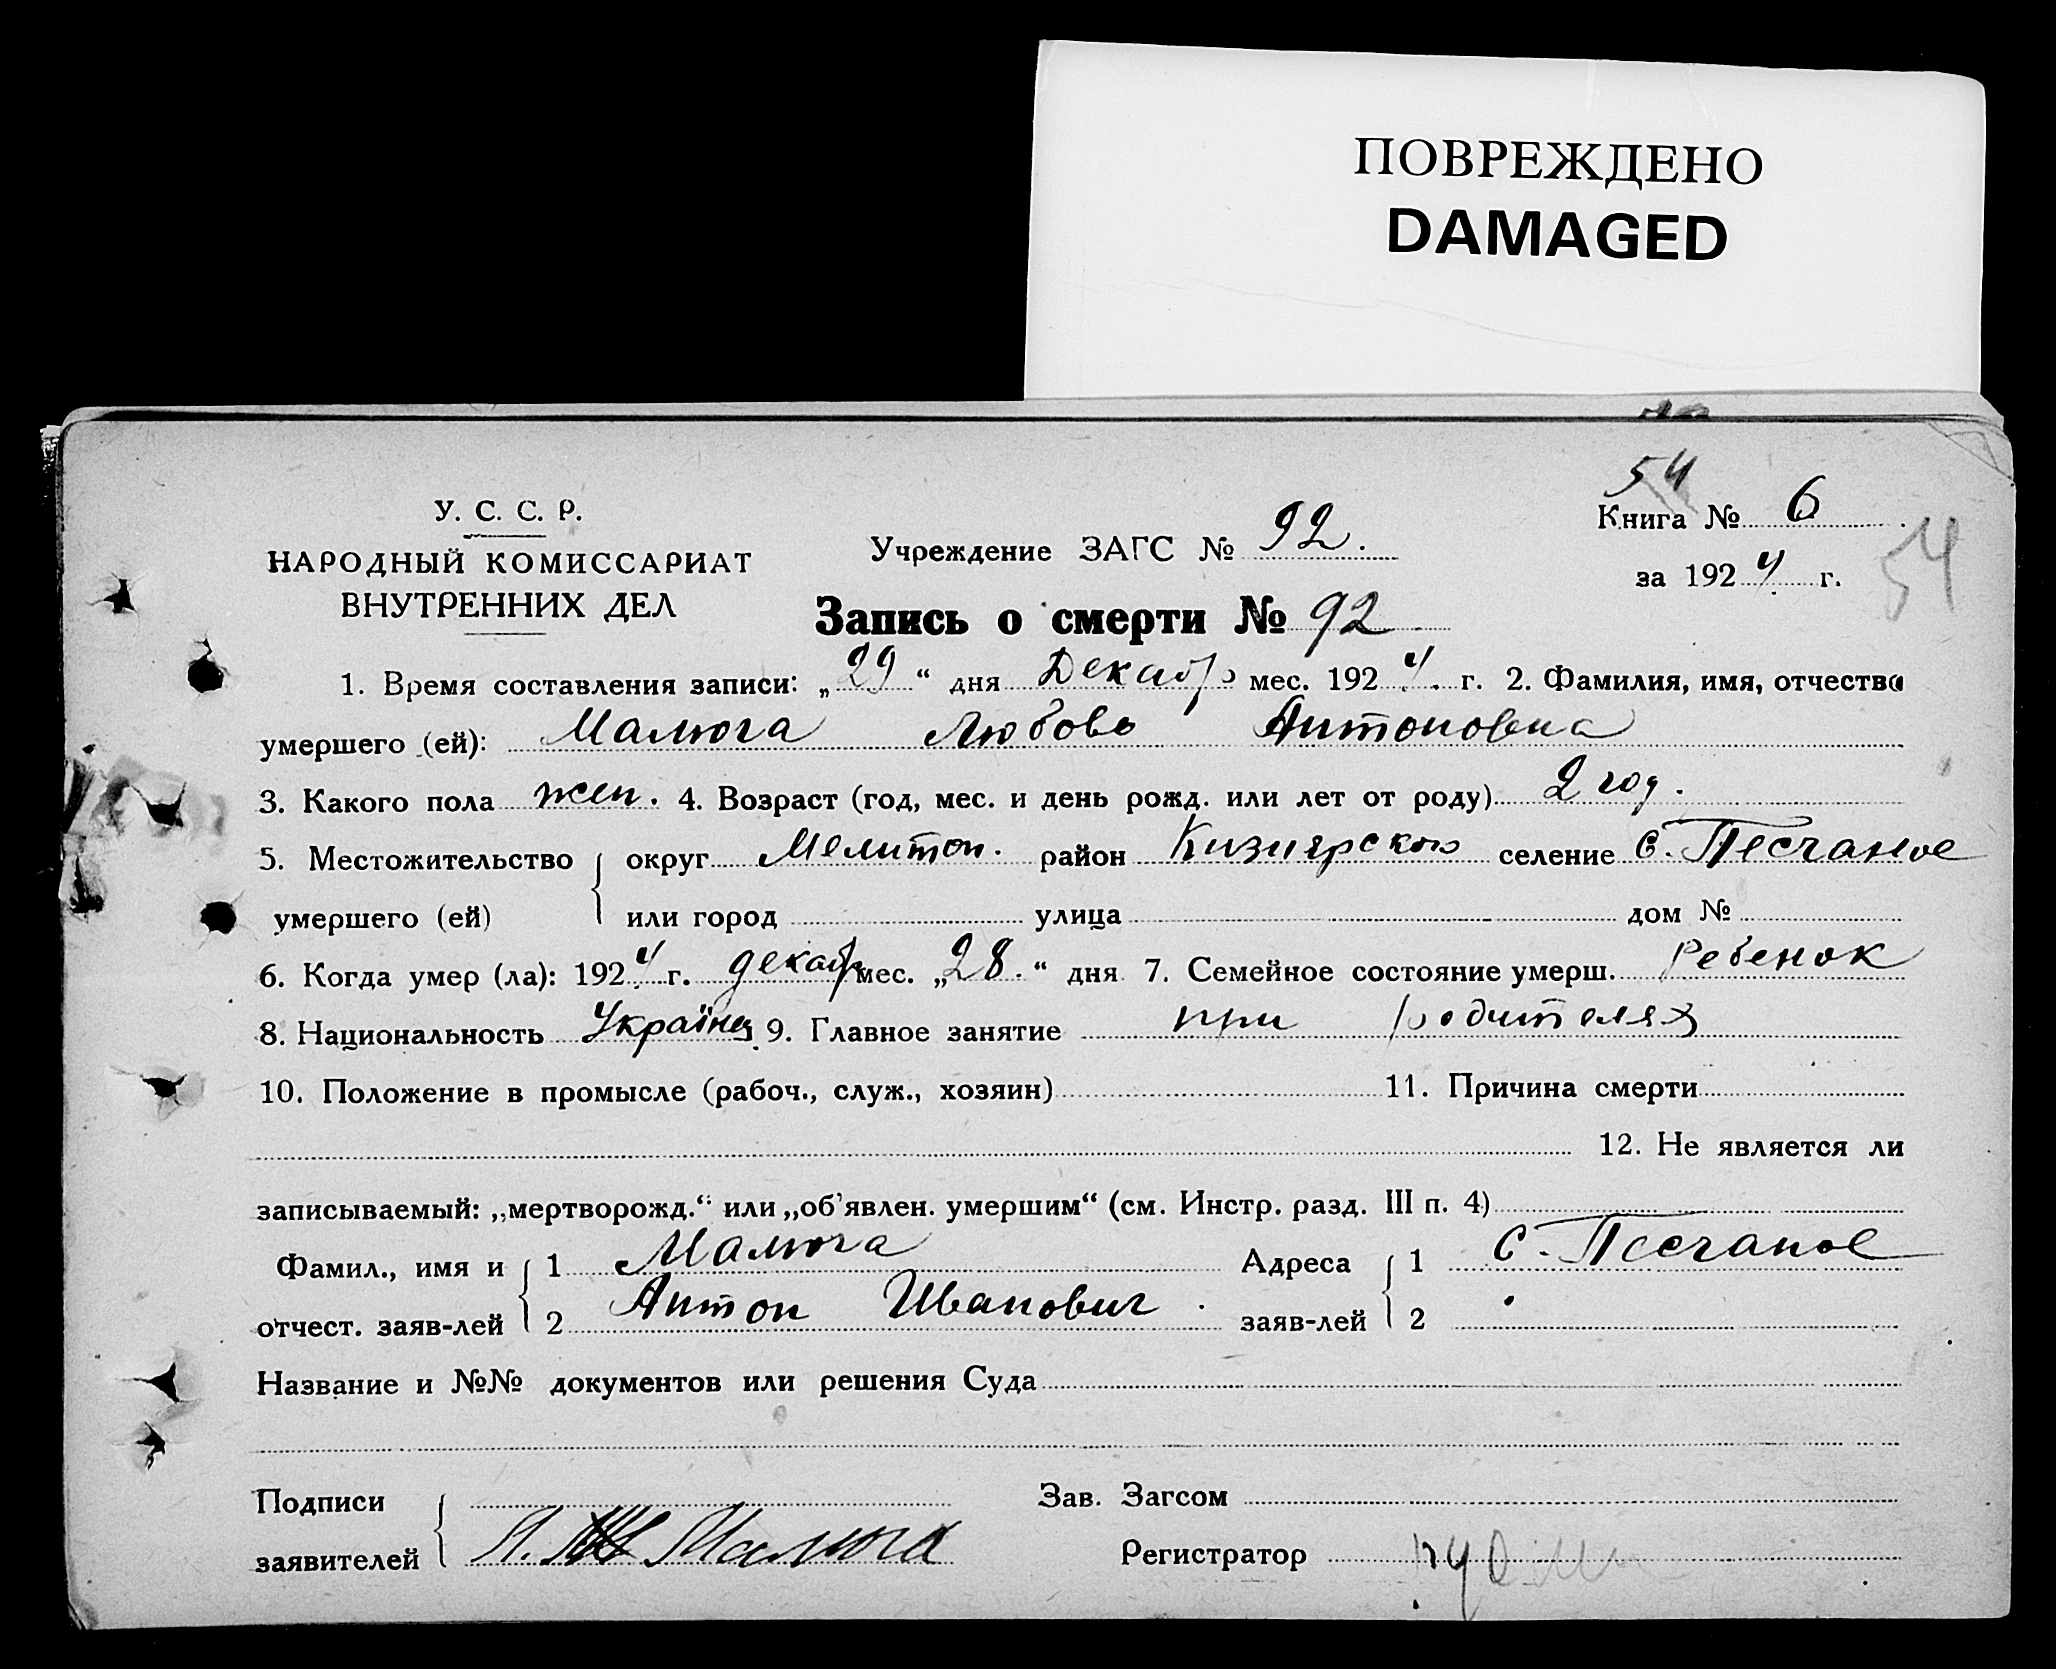 ПОВРЕЖДЕНО
DAMAGED
54
У. С. С. Р.
НАРОДНЫЙ КОМИССАРИАТ
ВНУТРЕННИХ ДЕЛ
Учреждение ЗАГС № 92.
Книга № 6
за 1924 г.
54
Запись о смерти № 92
1. Время составления записи: „29“ дня Декабр мес. 1924 г. 2. Фамилия, имя, отчество
умершего (ей): Малюга Любовь Антоновна
3. Какого пола жен. 4. Возраст (год, мес. и день рожд. или лет от роду) 2 год.
5. Местожительство округ Мелитоп. район Кизиярского селение с. Песчаное
умершего (ей) или город улица дом №
6. Когда умер (ла): 1924 г. декабр мес. „28.“ дня 7. Семейное состояние умерш. Ребенок
8. Национальность Україн 9. Главное занятие при родителях
10. Положение в промысле (рабоч., служ., хозяин) 11. Причина смерти
12. Не является ли
записываемый: „мертворожд.“ или „об'явлен. умершим“ (см. Инстр. разд. III п. 4)
Фамил., имя и 1 Малюга Адреса 1 С. Песчаное
отчест. заяв-лей 2 Антон Иванович. заяв-лей 2
Название и №№ документов или решения Суда
Подписи Зав. Загсом
заявителей А. Малюга Регистратор